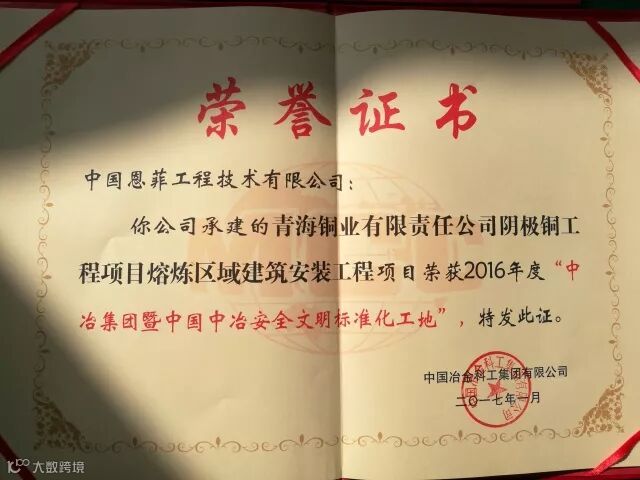 荣誉证书
中国恩菲工程技术有限公司：
你公司承建的青海铜业有限责任公司阴极铜工
程项目熔炼区域建筑安装工程项目荣获2016年度“中
冶集团暨中国中冶安全文明标准化工地”，特发此证。
中国冶金科工集团有限公司
二〇一七年一月
大数跨境